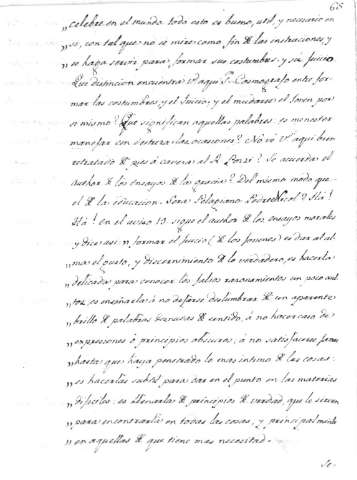 65
„ celebre en el mundo. todo esto es bueno, util, y necesario en
„ si, con tal que no se mire como fin de las instrucciones y
„ se haga servir para formar sus costumbres, y su Juicio.
Que distincion encuentra Vd aqui P. Cosmografo entre for-
mar las costumbres y el Juicio, y el mudarse el Joven por
si mismo? Que significan aquellas palabras: es menester
manejar con destreza las ocasiones? No ve Vd aqui bien
retratado de pies á caveza al P.
author de los ensayos de la
el de la educacion. Sora Pelegrano
Ha! En el aviso 13. sigue el author de los ensayos morales
y dice asi: „ formar el Juicio (de los Jovenes) es dar al al-
„ ma el gusto, y discernimiento de lo verdadero; es hacerla
„ delicada para conocer los falsos razonamientos un poco
„ es enseñarla á no dejarse deslumbrar de un aparente
„ brillo de palabras de sentido, á no hacer caso de
„ expresiones ó principios obscuros, á no satisfacerse
„ hasta que haya penetrado lo mas intimo de las cosas:
„ es hacerlas subtil para dar en el punto en las materias
„ dificiles: es llenarla de principios de verdad, que le sirven
„ para encontrarla en todas las cosas, y principalmente
„ en aquellas de que tiene mas necesidad.
Se